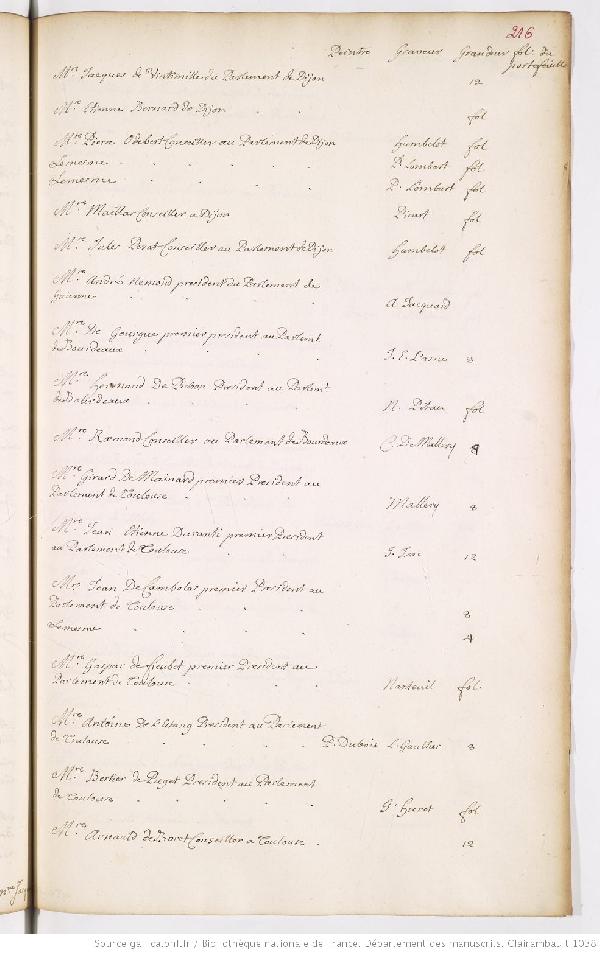 216
Peintre Graveur Grandeur fol. du
portefeuille
Mre Jacques de Vintimille du Parlement de Dijon 12
Mre Etienne Bernard de Dijon fol
Mre Pierre Odebert Conseiller au Parlement de Dijon Humbelot fol
Lemesme P. Lombart fol
Lemesme P. Lombart fol
Mre Maillar Conseiller a Dijon Picart fol
Mre Jules Perat Conseiller au Parlement de Dijon Humbelot fol
Mre André president du Parlement de
A Jacquard
Mre De Gourgue premier president au Parlemt
de Bourdeaux 8
Mre President au Parlemt
de Bourdeaux N. Pitau fol
Mre Raemond Conseiller au Parlement de Bourdeaux C. De Mallery 8
Mre Girard De Mainard premier President au
Parlement de Toulouse Mallery 8
Mre Jean Etienne Duranti premier President
au Parlement de Toulouse 12
Mre Jean De Cambolas premier President au
Parlement de Toulouse 8
Lemesme 4
Mre Gaspar de fieubet premier President au
Parlement de Toulouse Nanteuil fol.
Mre Antoine De Lestang President au Parlement
de Toulouse P. Dubois L. Gaultier 8
Mre Bertier de Puget President au Parlement
de Toulouse fol
Mre Arnauld de Boret Conseiller a Toulouse 12
Source gallica.bnf.fr / Bibliothèque nationale de France. Département des manuscrits. Clairambault 1038